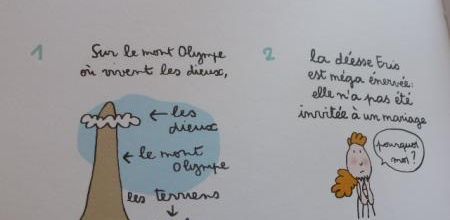 1
Sur le mont Olympe
où vivent les dieux,
← les
dieux
← le mont
Olympe
les terriens
↓
2
la déesse Eris
est méga énervée:
elle n'a pas été
invitée à un mariage
pourquoi
moi?